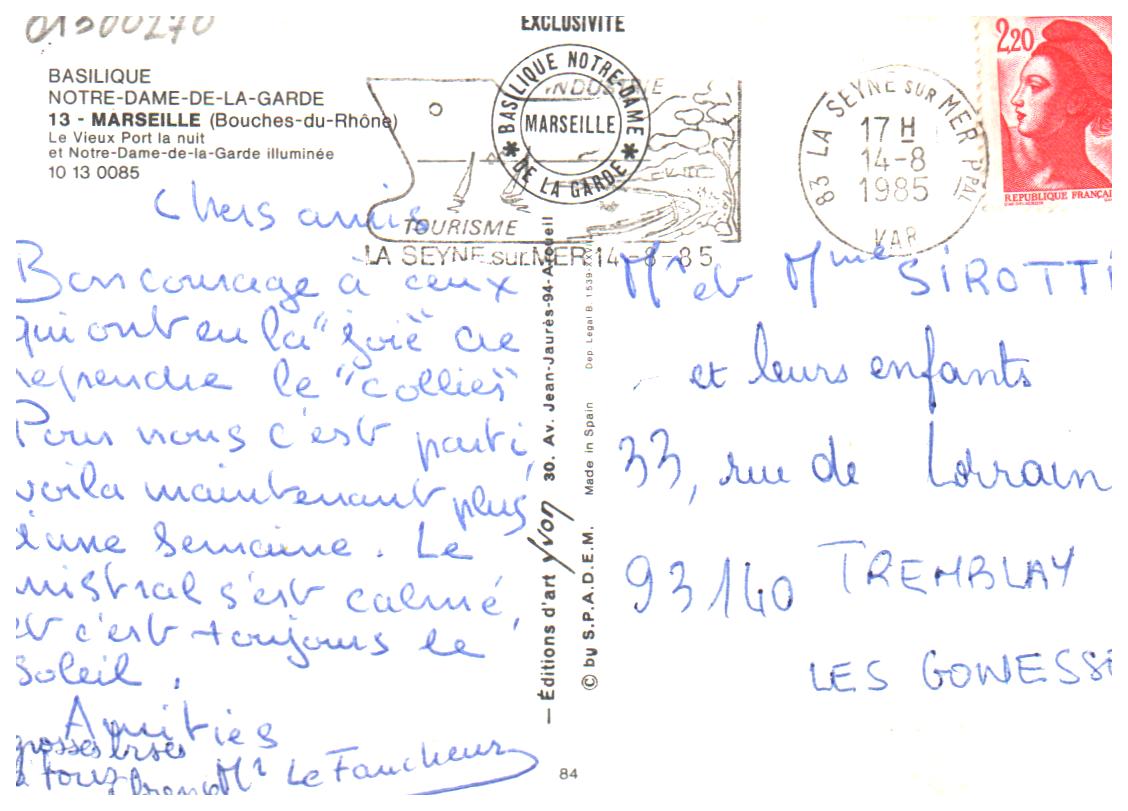 01300270
EXCLUSIVITÉ
BASILIQUE
NOTRE-DAME-DE-LA-GARDE
13 - MARSEILLE (Bouches-du-Rhône)
Le Vieux Port la nuit
et Notre-Dame-de-la-Garde illuminée
10 13 0085
BASILIQUE NOTRE-DAME
MARSEILLE
DE LA GARDE
INDUSTRIE
TOURISME
LA SEYNE SUR MER 14-8-85
83 LA SEYNE SUR MER PPAL
17 H
14-8
1985
VAR
2,20
REPUBLIQUE FRANÇAI
Chers amis
Bon courage à ceux
qui ont eu la "joie" de
reprendre le "collier"
Pour nous c'est parti,
voila maintenant plus
d'une semaine. Le
mistral s'est calmé,
et c'est toujours le
soleil.
Amitiés
grosses bises
à tous
Mr Le Faucheur
— Éditions d'art Yvon 30. Av. Jean-Jaurès-94-Arcueil
© by S.P.A.D.E.M. Made in Spain Dep Legal B. 1539-XXVI
84
Mr et Mme SIROTTI
et leurs enfants
33, rue de Lorrain
93140 TREMBLAY
LES GONESSE